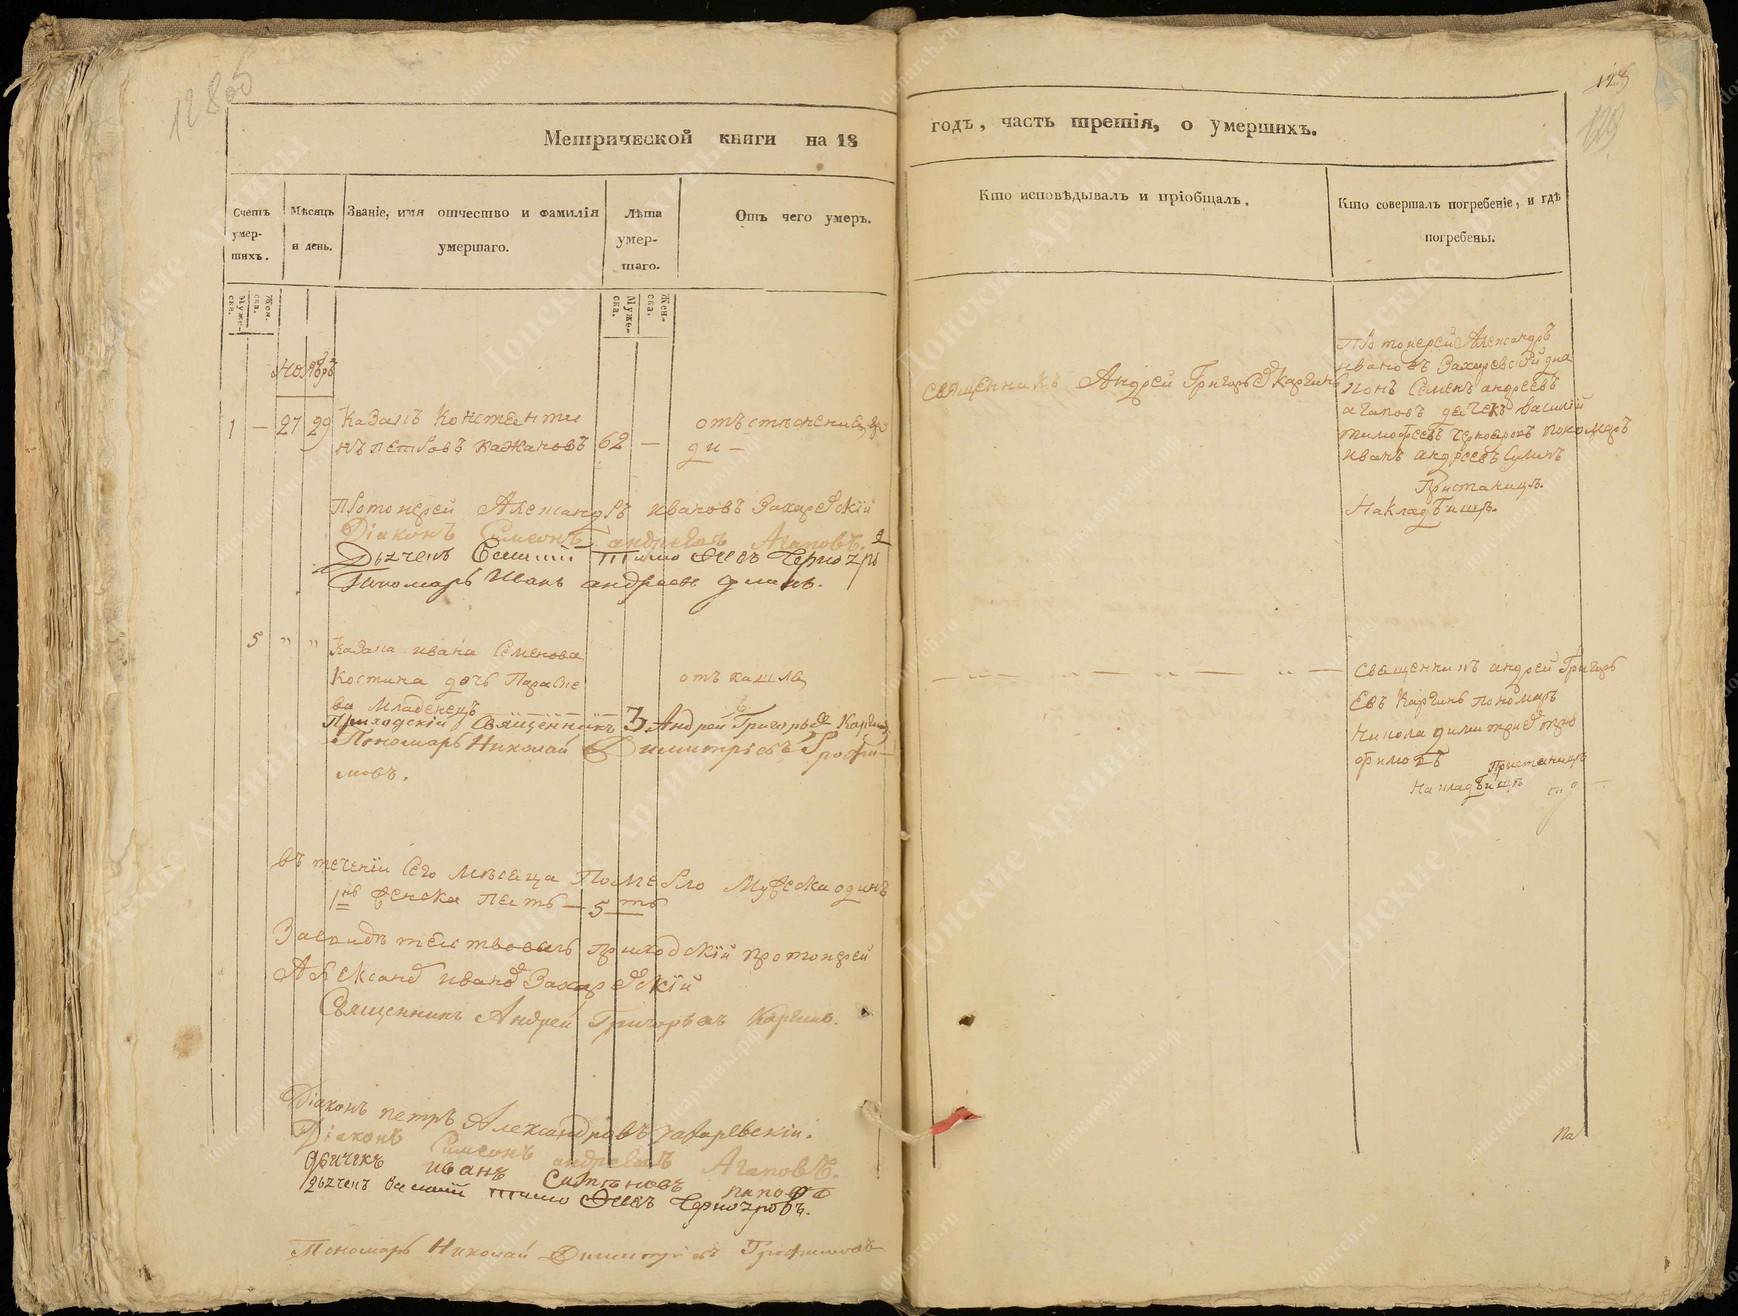 128об
128
129
Метрической книги на 18
годъ, часть третія, о умершихъ.
Счетъ умер- шихъ.
Мѣсяцъ и день.
Званіе, имя отчество и фамилія умершаго.
Лѣта умер- шаго.
Отъ чего умеръ.
Кто исповѣдывалъ и пріобщалъ.
Кто совершалъ погребеніе, и гдѣ погребены.
Муже- ска.
Жен. ска.
Муже- ска.
Жен- ска.
Ноябръ
1 — 27 29 Казакъ Константи
нъ петровъ кажановъ 62 —
отъ стѣснения гру
ди —
священникъ Андрей Григорьевъ каргинъ
Протоиерей Александръ
ивановъ Захаревский диа
конъ Семенъ андреевъ
агаповъ дьячекъ василий
тимофеевъ черногоровъ пономаръ
иванъ андреевъ
Пристаницѣ
На кладбищѣ.
Протоиерей Александръ ивановъ Захаревскій
Діаконъ Симеонъ андреевъ Агаповъ.
Дьячекъ Василий Тимофеевъ Черногоро
Пономарь Иванъ андреевъ
5 " " Казака ивана Семенова
Костина дочь Параске
ва Младенецъ
отъ кашля
Приходскій Священникъ Андрей Григорьевъ Каргинъ
Пономарь Николай Димитріевъ Трофи—
мовъ.
священникъ андрей Григорь
евъ Каргинъ пономарь
Никола димитриевъ тро
фимовъ
Пристаницѣ
На кладбищѣ
въ теченіи Сего Мѣсяца Померло Мужеска одинъ
1нъ женска петь — 5 ть
Засвидѣтельствовалъ приходскій протоиерей
Александръ ивановъ Захаревскій
Священникъ Андрей Григорьевъ Каргинъ.
Діаконъ петръ Александровъ захаревскій.
Діаконъ Симеонъ андреевъ Агаповъ.
Дьячекъ иванъ Ситниковъ поповъ
Дьячекъ Василий Тимофеевъ Черногоровъ.
Пономарь Николай Димитріевъ Трофимовъ